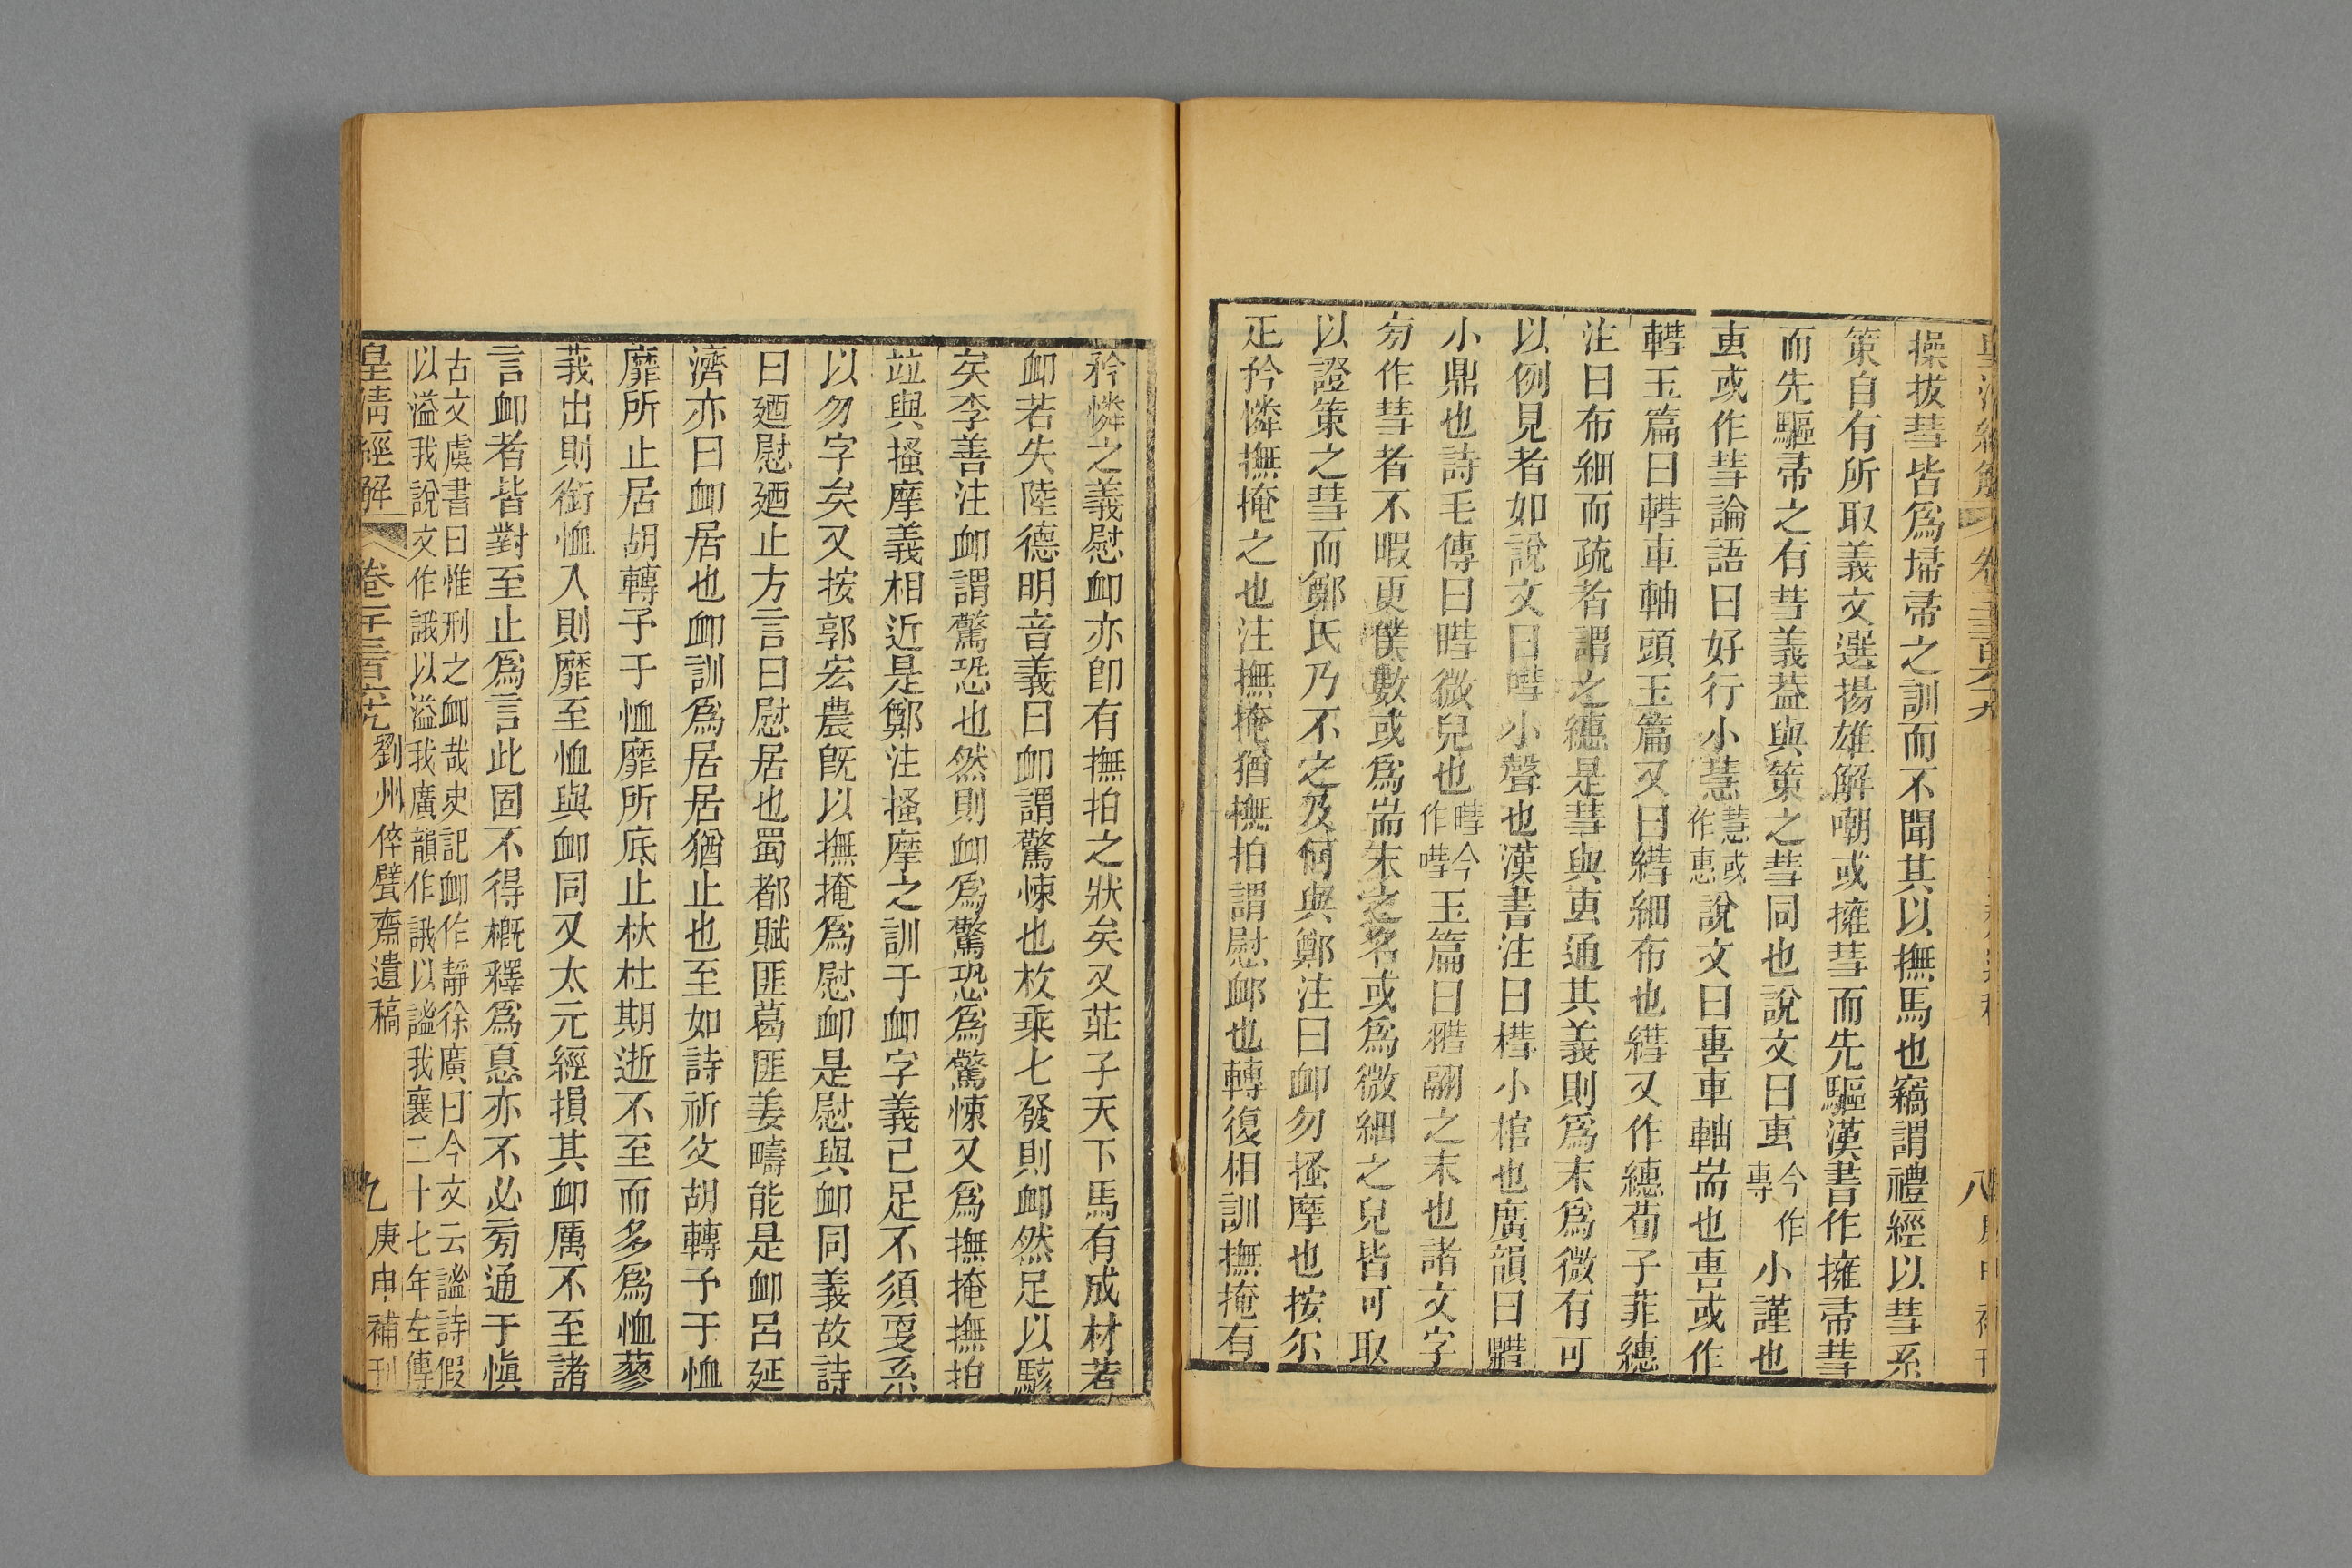 操拔彗皆爲埽帚之訓而不聞其以撫馬也竊謂禮經以彗系
策自有所取義文選揚雄解嘲或擁彗而先驅漢書作擁帚彗
而先驅帚之有彗義葢與策之彗同也說文曰叀今作專小謹也
叀或作彗論語曰好行小慧慧或作惠說文曰軎車軸耑也軎或作
轊玉篇曰轊車軸頭玉篇又曰繐細布也繐又作繐荀子菲繐
注曰布細而疏者謂之繐是彗與叀通其義則爲末爲微有可
以例見者如說文曰嘒小聲也漢書注曰槥小棺也廣韻曰
小鼎也詩毛傳曰嘒微皃也嘒今作嘒玉篇曰翽之末也諸文字
㫄作彗者不暇更僕數或爲耑末之名或爲微細之皃皆可取
以證策之彗而鄭氏乃不之及何與鄭注曰卹勿搔摩也按尔
疋矜憐撫掩之也注撫掩猶撫拍謂慰卹也轉復相訓撫掩有
矜憐之義慰卹亦卽有撫拍之狀矣又莊子天下馬有成材若
卹若失陸德明音義曰卹謂驚悚也枚乘七發則卹然足以駭
矣李善注卹謂驚恐也然則卹爲驚恐爲驚悚又爲撫掩撫拍
竝與搔摩義相近是鄭注搔摩之訓于卹字義已足不須叓系
以勿字矣又按郭宏農旣以撫掩爲慰卹是慰與卹同義故詩
曰廼慰廼止方言曰慰居也蜀都賦匪葛匪姜疇能是卹呂延
濟亦曰卹居也卹訓爲居居猶止也至如詩祈父胡轉予于恤
靡所止居胡轉予于恤靡所底止杕杜期逝不至而多爲恤蓼
莪出則銜恤入則靡至恤與卹同又太元經損其卹厲不至諸
言卹者皆對至止爲言此固不得槪釋爲惪亦不必㫄通于愼
古文虞書曰惟刑之卹哉史記卹作靜徐廣曰今文云謐詩假
以溢我說文作誐以溢我廣韻作誐以謐我襄二十七年左傳
皇淸經解 卷 劉州倅甓齋遺稿 九 庚申補刊